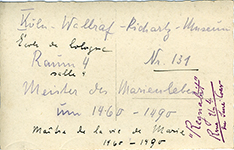 Köln - Wallraf - Richartz - Museum
École de Cologne
Raum 4 Nr. 131
salle 4
Meister des Marienlebens
um 1460 - 1490
Maître de la vie de Marie
1460 - 1490
"Regnault"